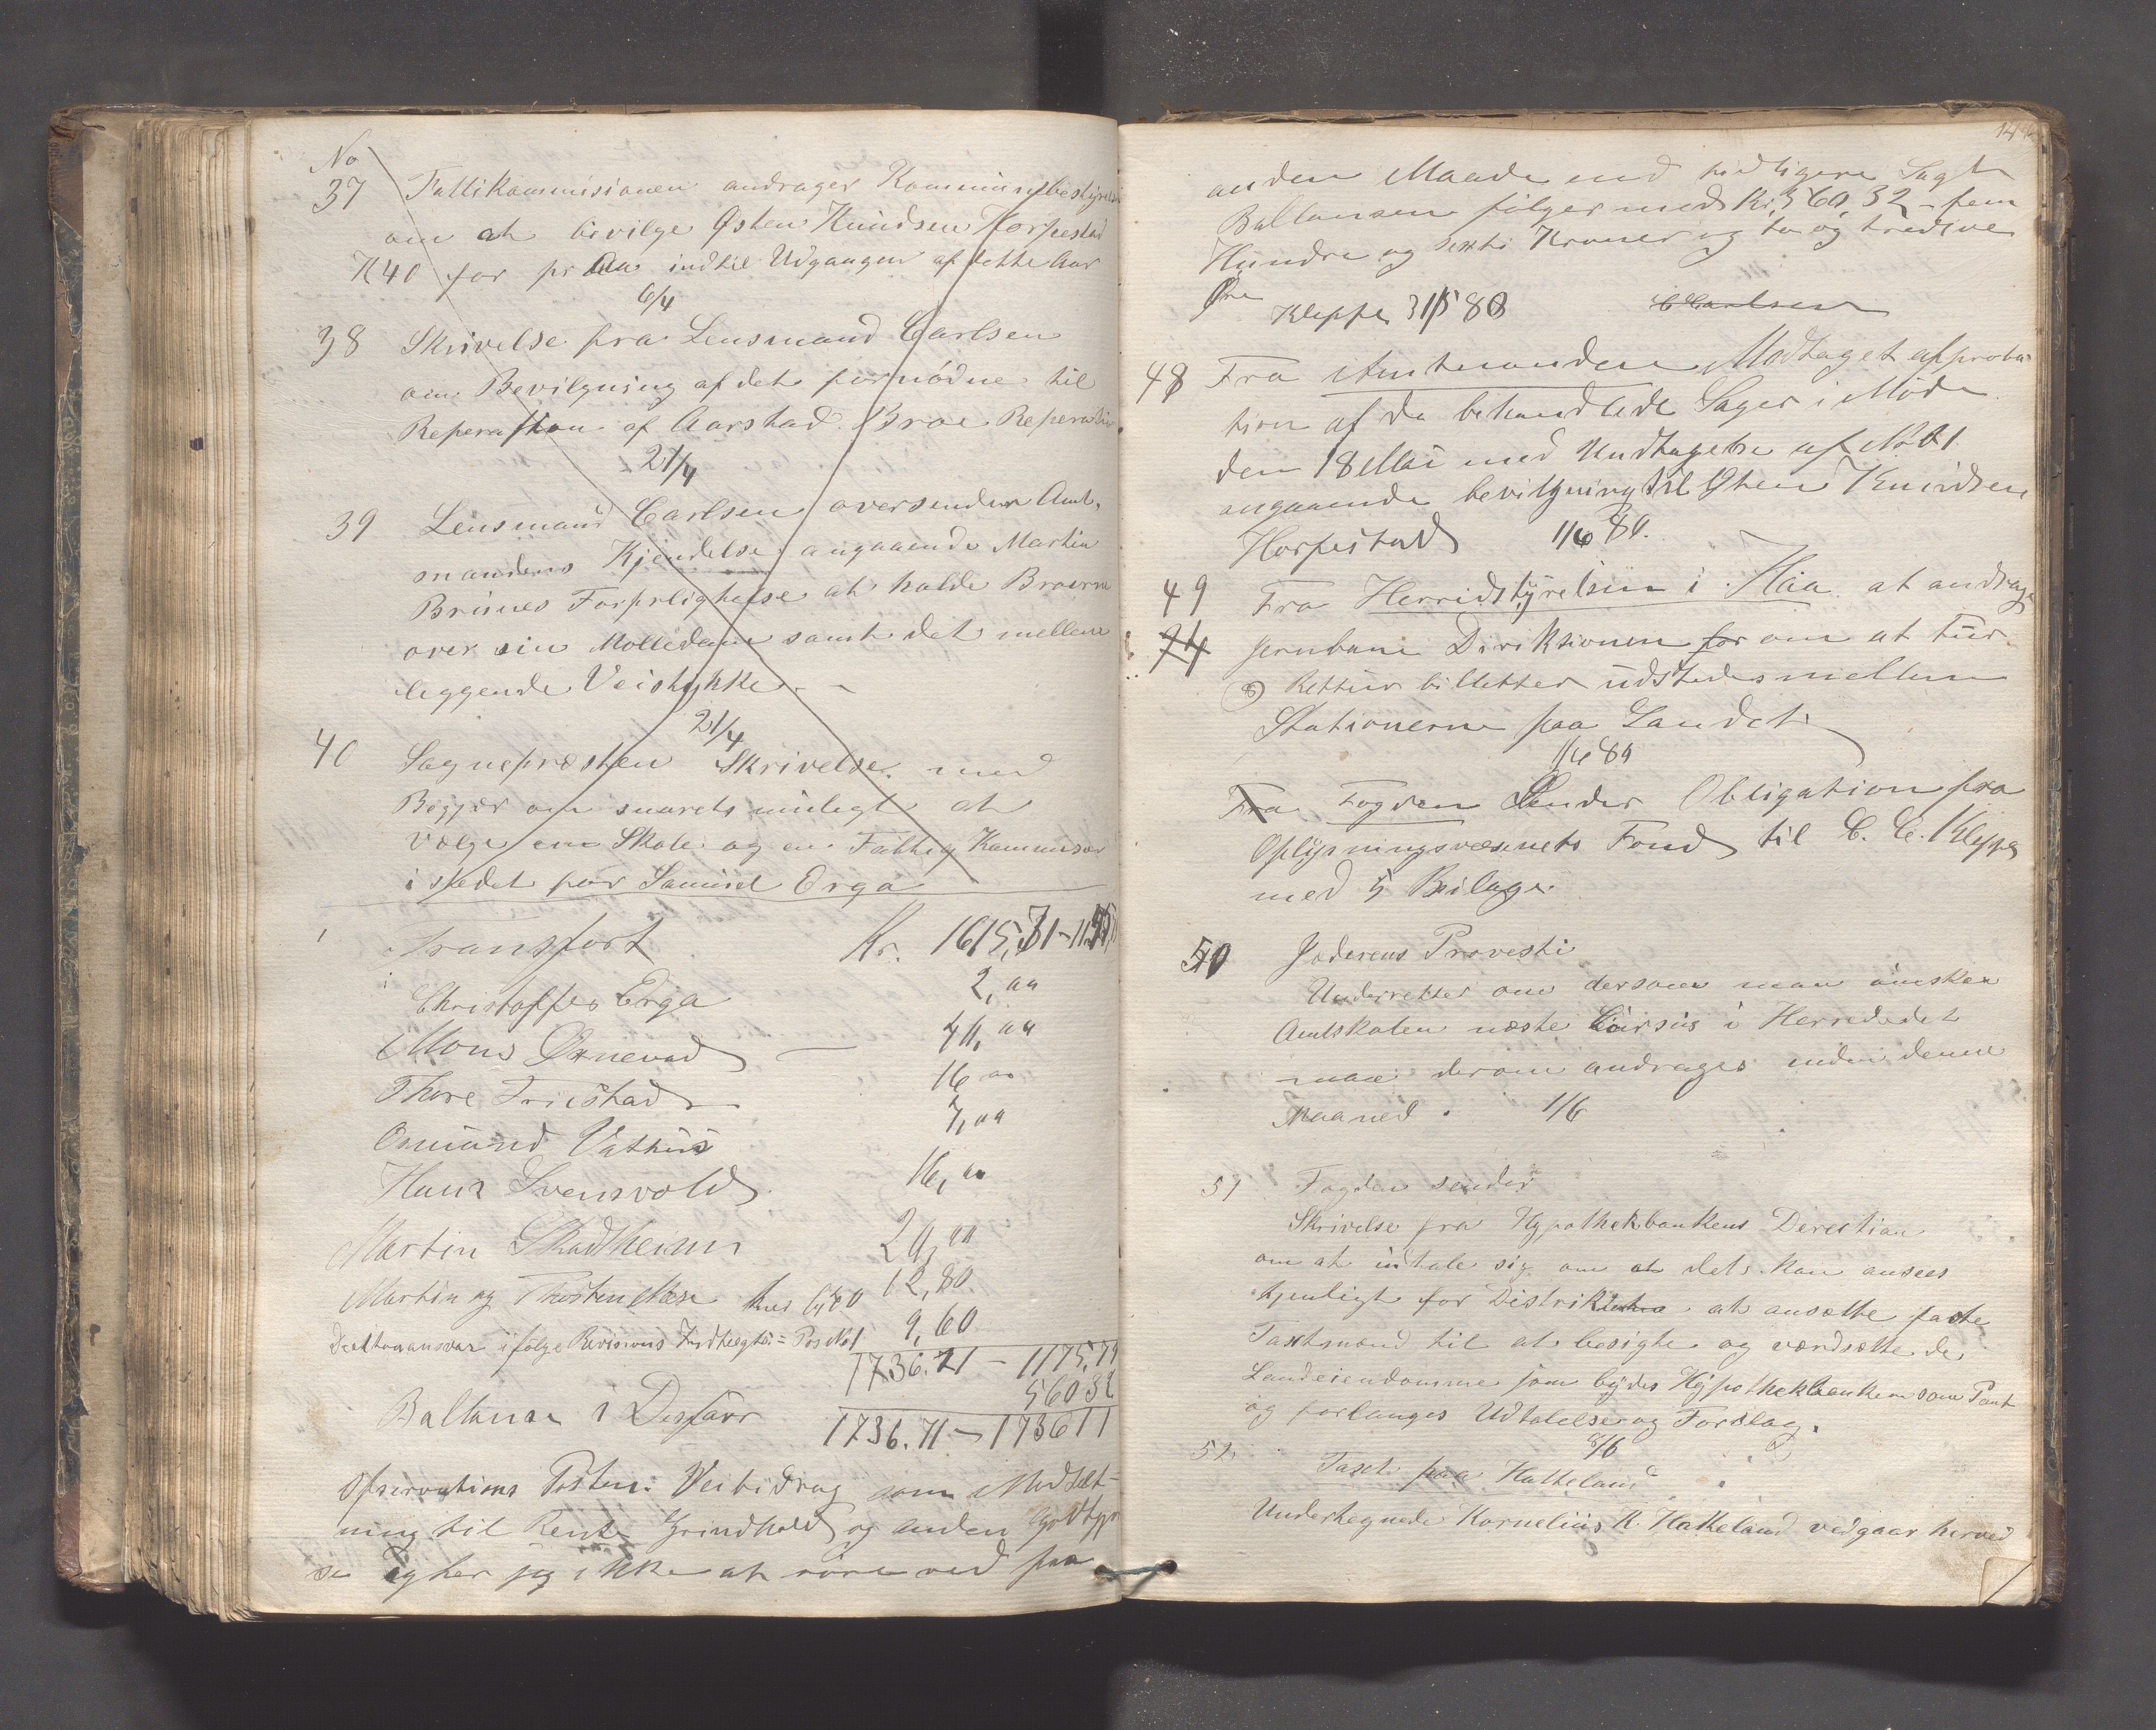 No
37 Fattikommisionen andrager Kommunebestyrelsen
om at bevilge Østen Knudsen Horpestad
K 40 for pr Aar indtil Udgangen af dette Aar
6/4
38 Skrivelse fra Lensmand Carlsen
om Bevilgning af det fornødne til
Reperation af Aarstad Broe Reperation
21/4
39 Lensmand Carlsen oversender Amt-
mandens Kjendelse angaaende Martin
Brunes Forpligtelse at holde Broerne
over sin Mølledam samt det mellem
leggende Veistykke
21/4
40 Sognepræsten Skrivelse med
Begjær om snarets muligt at
vælge en Skole og en Fattig Kommisær
i stedet for Samuel Orga
Transport Kr. 1615,31 -
Christoffer Erga 2,00
Mons Øxnevad 40,00
Thore Friestad 16 00
Osmund Vathus 7,00
Hans Svensvold 16,00
Martin Skadheim 20,00
Martin og Thosten Næse 12,80
ifølge Revisions Pos No 1 9,60
1736.71 - 1175,79
Ballanse i Desfavr 560 32
1736.71 - 1736 11
Observations Posten: Veibidrag som
ning til Rente Grindhold og anden
jeg ikke at røre ved paa
anden Maade end tidligere Sagt
Ballansen følger med Kr. 560,32 - fem
Hundre og sexti Kroner og to og tredive
Øre
Kleppe 31/5 80 C Carlsen
48 Fra Amtmanden Modtaget approba-
tion af de behandlede Sager i Møde
den 18 Mai med Undtagelse af No 21
angaaende bevilgning til Østen Knudsen
Horpestad 1/6 80.
49 Fra Herridstyrelsen i Haa at andrage
Jernbane Direksionen for om at tur
Rettur billetter udstedes mellem
Stationerne paa Landet
1/6 80
Fra Fogden Sender Obligation fra
Oplysningsvæsenets Fond til C. C. Kleppe
med 5 Beilage.
50 Jæderens Provesti
Underretter om dersom man ønsker
Amtskolen næste Cursus i Herredet
maa derom andrages inden denne
Maaned. 1/6
51 Fogden sender
Skrivelse fra Hypothekbankens Direction
om at udtale sig om at det kan ansees
tjenligt for Distriktet at ansætte faste
Taxtmænd til at besigte og værdsætte de
Landeiendomme som bydes Hypothekbanken som Pant
og forlanges Udtalelse og Forslag.
8/6
52 Taxt paa Hatteland
Undertegnede Kornelius K. Hatteland vedgaar herved